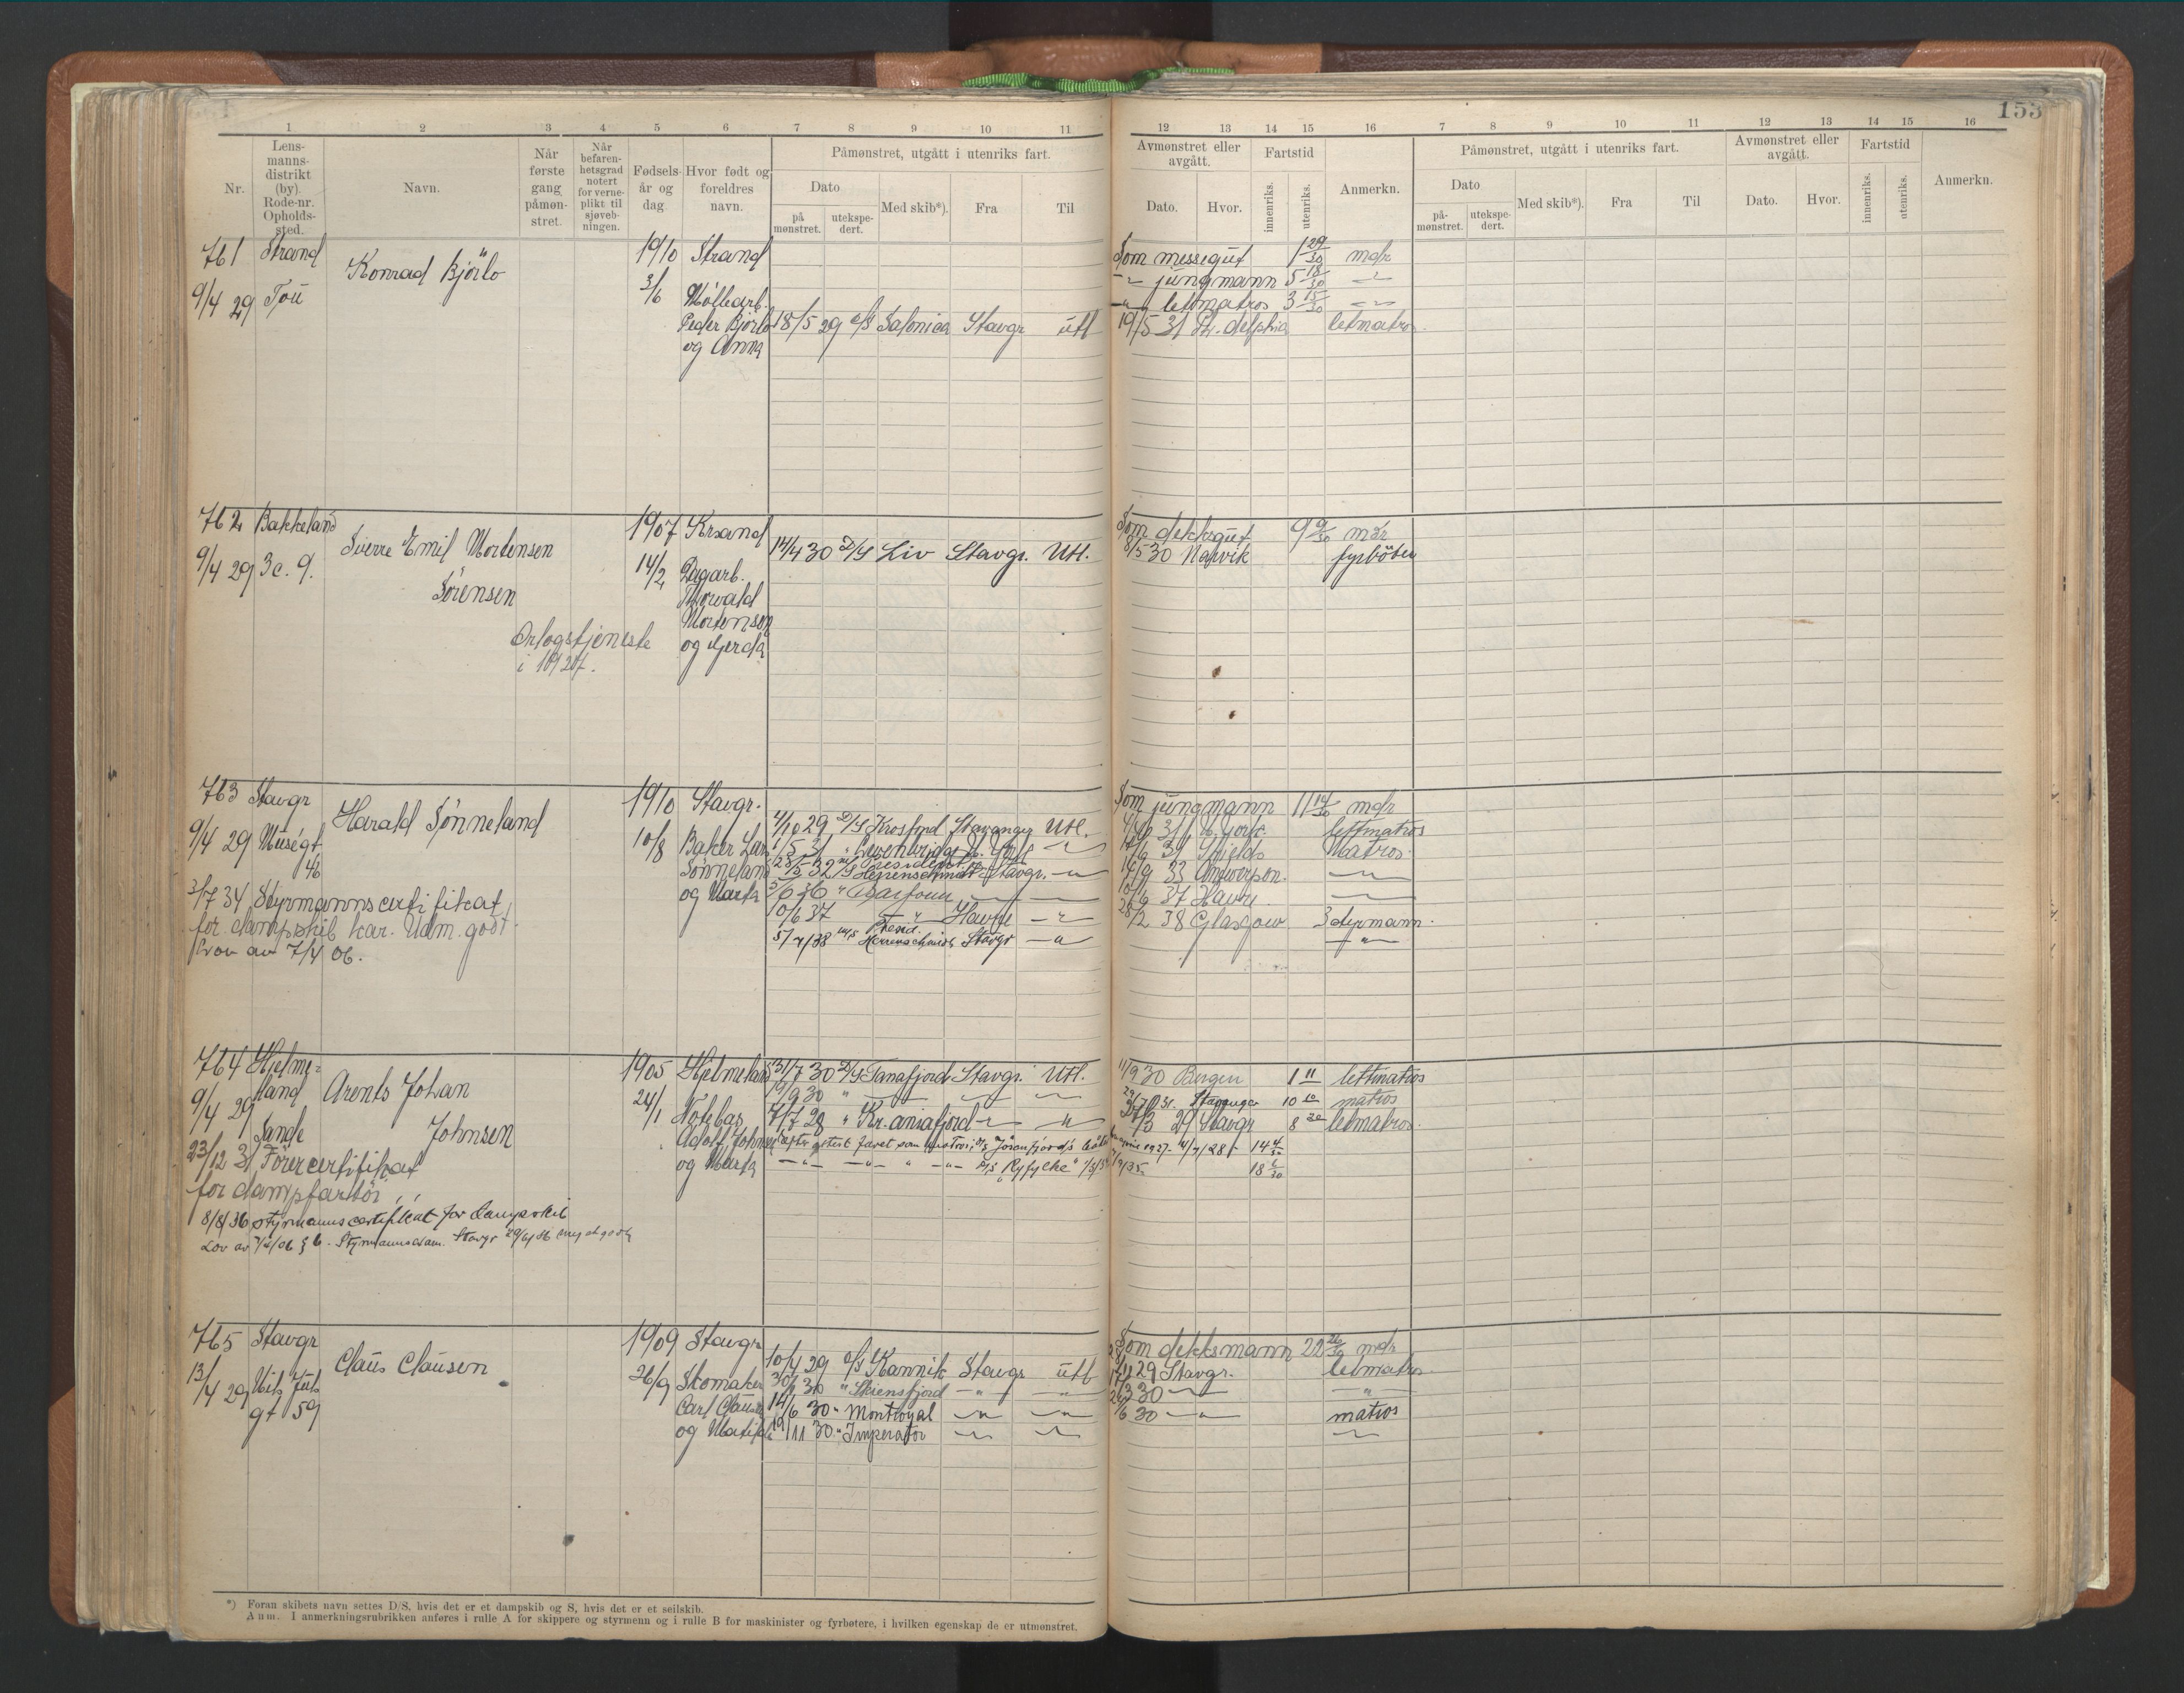 153
1 2 3 4 5 6 7 8 9 10 11
12 13 14 15 16 7 8 9 10 11 12 13 14 15 16
Nr.
Lens-
manns-
distrikt
(by).
Rode-nr.
Opholds-
sted.
Navn.
Når
første
gang
påmøn-
stret.
Når
befaren-
hetsgrad
notert
for verne-
plikt til
sjøveb-
ningen.
Fødsels-
år og
dag.
Hvor født og
foreldres
navn.
Påmønstret, utgått i utenriks fart.
Dato
på
mønstret.
utekspe-
dert.
Med skib*).
Fra
Til
Avmønstret eller
avgått.
Dato.
Hvor.
Fartstid
innenriks.
utenriks.
Anmerkn.
Påmønstret, utgått i utenriks fart.
Dato
på-
mønstret.
utekspe-
dert.
Med skib*).
Fra
Til
Avmønstret eller
avgått.
Dato.
Hvor.
Fartstid
innenriks.
utenriks.
Anmerkn.
761
9/4 29
Strand
Tou
Konrad Bjørlo
1910
3/6
Strand
Møllearb.
Peder Bjørlo
og Anna
18/5 29 e/s Salonica Stavgr utl
Som messegut 1 29/30 mdr
-"- jungmann 5 18/30 -"-
-"- lettmatros 3 15/30 -"-
19/5 31 Ph. delphia letmatros
762
9/4 29
Bakkeland
3c. 9.
Sverre Emil Mortensen
Sørensen
Orlogstjeneste
i 1927.
1907
14/2
Krsand
Dagarb.
Thorvald
Mortensen
og Gerda
14/4 30 D/S Liv Stavgr. Utl.
Som dekksgut 9 9/30 mdr
8/5 30 Narvik fyrbøter
763
9/4 29
Stavgr
Muségt
46
Harald Sønneland
3/7 34 Styrmannscertifikat
for dampskib kar. Udm. godt.
Lov av 7/4 06.
1910
10/8
Stavgr.
Baker Lars
Sønneland
og Marta
4/10 29 D/S Krosfond Stavanger Utl.
1/5 31 " N. York -"-
President
28/5 32 M/S Herrenschmidt Stavgr. -"-
5/6 36 " -"- -"-
10/6 37 -"- Havre -"-
Presid.
5/4/38 m/s Herrenschmidt Stavgr -"-
Som jungmann 11 14/30 mdr
N. York. lettmatros
Shields Matros.
33 Antwerpen. -"-
10/6 37 Havre. -"-
28/2 38 Glasgow 3 styrmann.
-"-
764
9/4 29
Hjelme-
land
Sande
Arents Johan
Johnsen
23/12 31 Førercertifikat
for dampfartøi
8/8/36 styrmannscertifikat for dampskib
Lov av 7/4/06 § 6. Styrmannsexam. Stavgr 29/4/36 meget godt
1905
24/1
Hjelmeland
Notebas
Adolf Johnsen
og Marta
31/7 30 D/S Tanafjord Stavgr. Utl.
19/9 30 " -"- -"- -"-
7/7 28 " Kr.aniafjord -"- "
" -"- D/S "Ryfylke"
11/9 30 Bergen 1 11 lettmatros
31. Stavanger 10 matros
27/3 29 Stavgr 8 letmatros.
14 4/30
18 6/30
765
13/4 29
Stavgr
Nils Juls
gt 59
Claus Clausen
1909
26/9
Stavgr
Skomaker
Carl Clausen
og Matilda
10/4 29 e/s Kannik Stavgr utl
30/1 30 " Skiensfjord -"- -"-
14/6 30 " Montroyal -"- -"-
19/11 30 " Imperator -"- -"-
Som dekksmann 22 26/30 mdr
29 Stavgr. letmatros
30 -"- -"-
6 30 -"- matros
-"-
*) Foran skibets navn settes D/S, hvis det er et dampskib og S, hvis det er et seilskib.
Anm. I anmerkningsrubrikken anføres i rulle A for skippere og styrmenn og i rulle B for maskinister og fyrbøtere, i hvilken egenskap de er utmønstret.